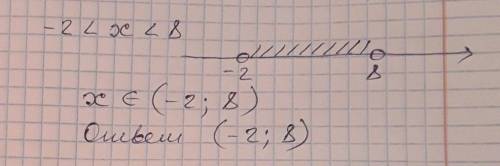 -2 < x < 8
-2 8
x ∈ (-2; 8)
Ответ (-2; 8)